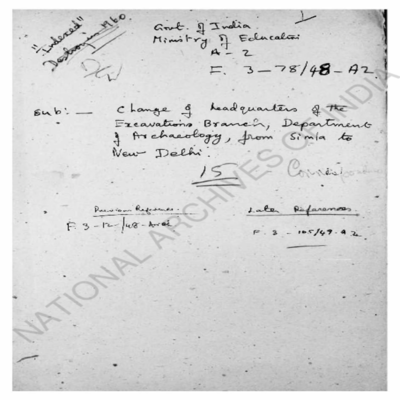 "Indexed"
Govt. of India
Ministry of Education
A - 2
F. 3-78/48-A2
Sub: - Change of headquarters of the
Excavations Branch, Department
of Archaeology, from Simla to
New Delhi.
15
Previous References
Later References
F. 3-12/48-
F. 3-105/49-A2
NATIONAL ARCHIVES OF INDIA